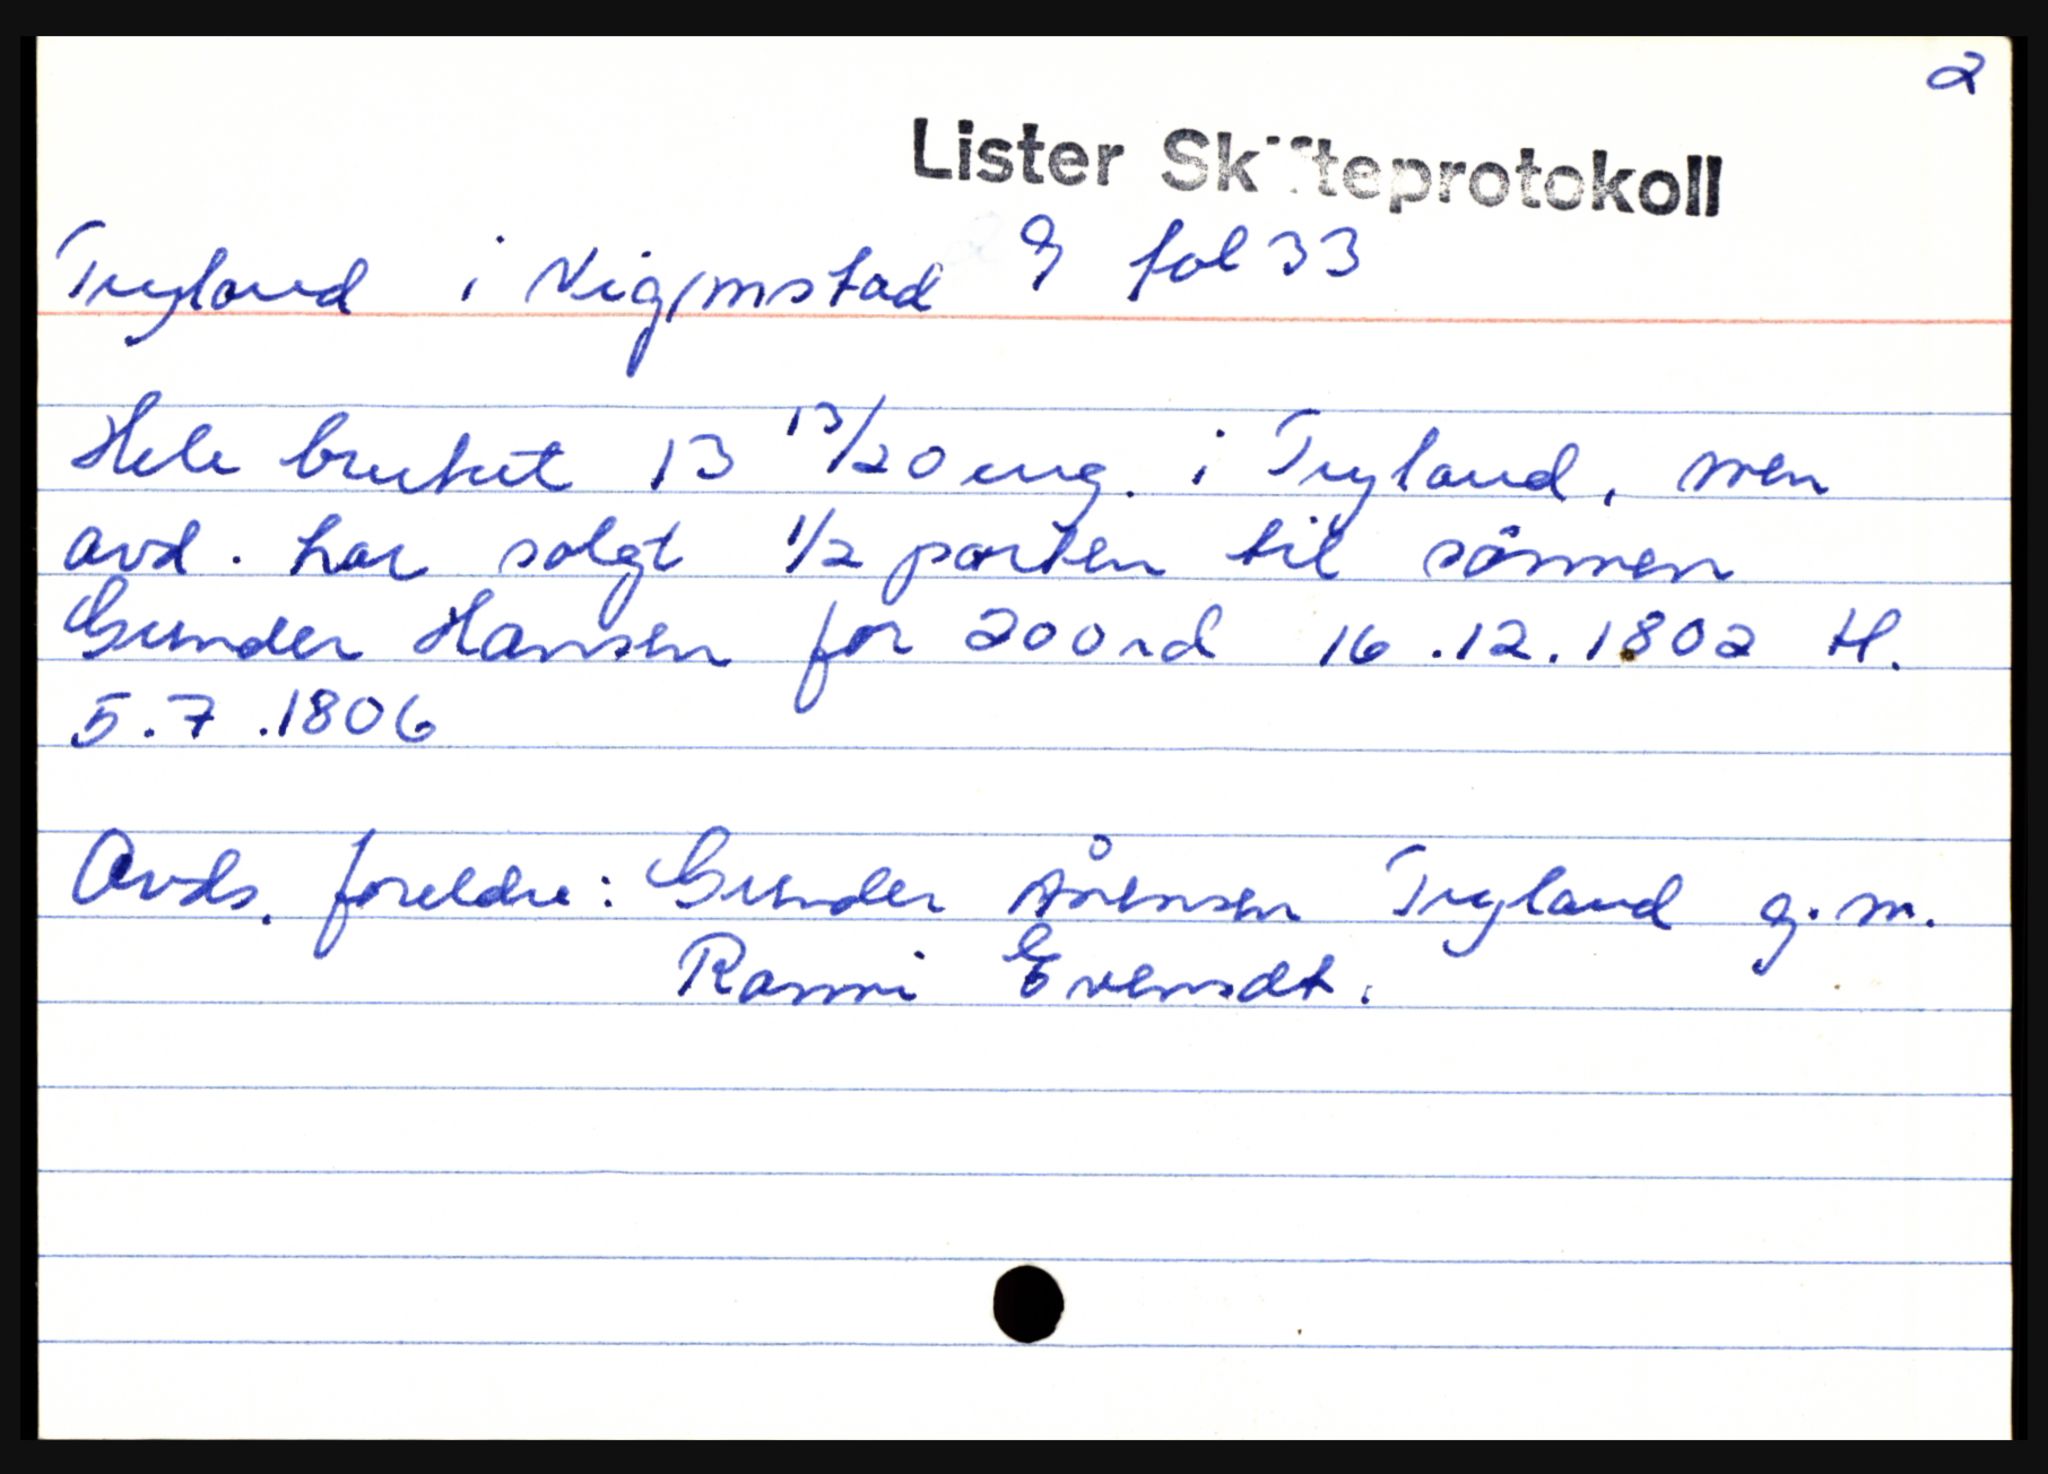 2
Lister Skifteprotokoll
Tryland i Vigmstad 9 fol 33
Hele bruket 13 13/20 eng. i Tryland, men
avd. har solgt 1/2 parten til sönnen
Gunder Hansen for 200 rd 16.12.1802 H.
5.7.1806
Avds. foreldre: Gunder Årensen Tryland g.m.
Ranni Evensdt.